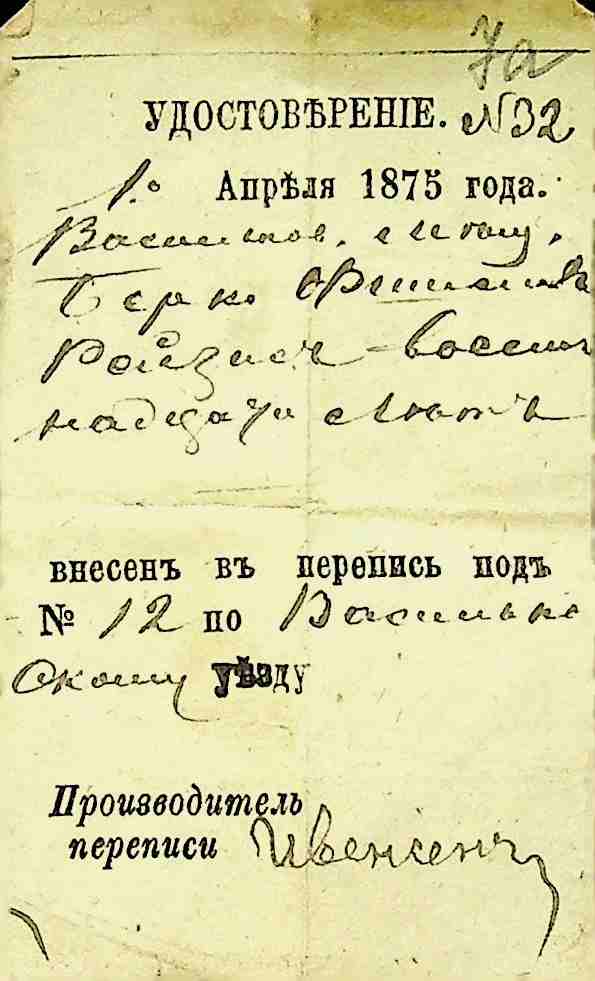 7а
УДОСТОВѢРЕНІЕ. №32
1го Апрѣля 1875 года.
Берко
восем
надцати лѣтъ
внесенъ въ перепись подъ
№ 12 по Василько
скому уѣзду
Производитель
переписи